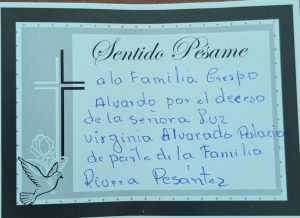 Sentido Pésame
a la Familia Crespo
Alvardo por el deceso
de la señora Luz
Virginia Alvarado Palacio
de parte de la Familia
Rivera Pesántez